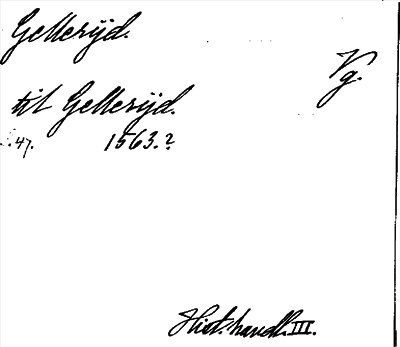 Gellerÿd.
Vg.
till Gellerÿd.
s. 47. 1563.?
Hist. handl. III.